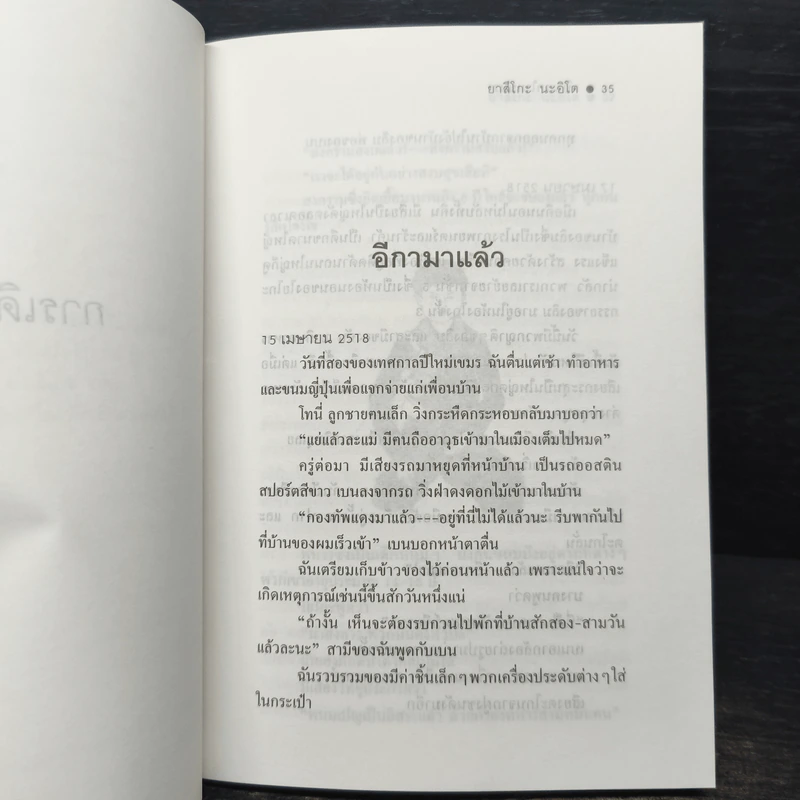 ยาสึโกะ นะอิโต ● 35
อีกามาแล้ว
15 เมษายน 2518
วันที่สองของเทศกาลปีใหม่เขมร ฉันตื่นแต่เช้า ทำอาหาร
และขนมญี่ปุ่นเพื่อแจกจ่ายแก่เพื่อนบ้าน
โทนี่ ลูกชายคนเล็ก วิ่งกระหืดกระหอบกลับมาบอกว่า
“แย่แล้วละแม่ มีคนถืออาวุธเข้ามาในเมืองเต็มไปหมด”
ครู่ต่อมา มีเสียงรถมาหยุดที่หน้าบ้าน เป็นรถออสติน
สปอร์ตสีขาว เบนลงจากรถ วิ่งฝ่าดงดอกไม้เข้ามาในบ้าน
“กองทัพแดงมาแล้ว---อยู่ที่นี่ไม่ได้แล้วนะ รีบพากันไป
ที่บ้านของผมเร็วเข้า” เบนบอกหน้าตาตื่น
ฉันเตรียมเก็บข้าวของไว้ก่อนหน้าแล้ว เพราะแน่ใจว่าจะ
เกิดเหตุการณ์เช่นนี้ขึ้นสักวันหนึ่งแน่
“ถ้างั้น เห็นจะต้องรบกวนไปพักที่บ้านสักสอง-สามวัน
แล้วละนะ” สามีของฉันพูดกับเบน
ฉันรวบรวมของมีค่าชิ้นเล็กๆ พวกเครื่องประดับต่างๆ ใส่
ในกระเป๋า